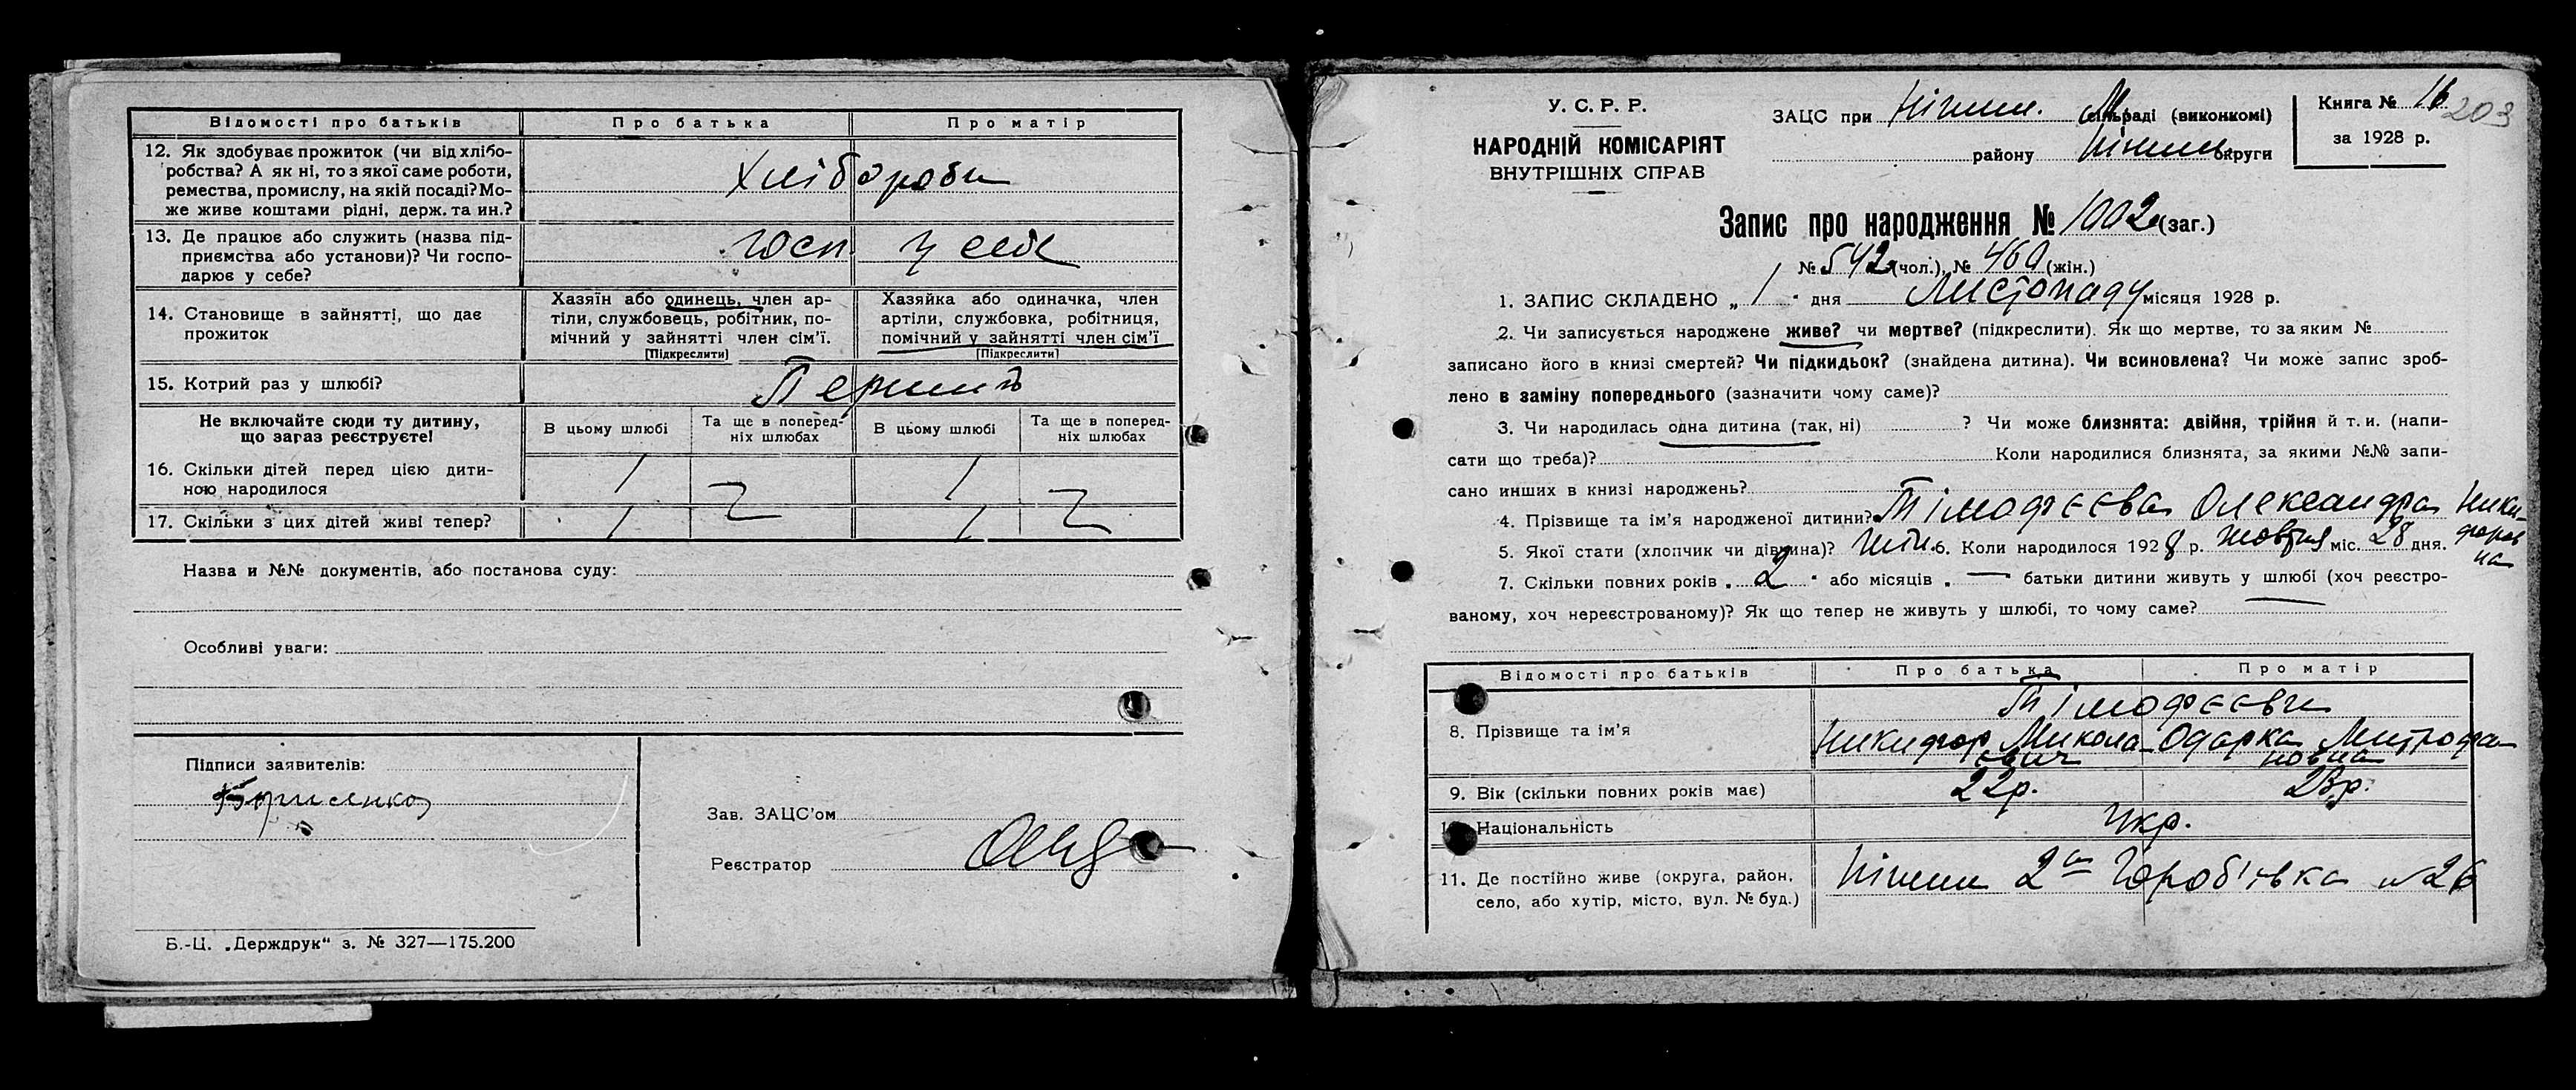 Відомості про батьків Про батька Про матір
12. Як здобуває прожиток (чи від хлібо-
робства? А як ні, то з якої саме роботи,
ремества, промислу, на якій посаді? Мо-
же живе коштами рідні, держ. та ин.?
Хлібороби
13. Де працює або служить (назва під-
приємства або установи)? Чи госпо-
дарює у себе?
Госп. у себе
14. Становище в зайнятті, що дає
прожиток
Хазяїн або одинець, член ар-
тіли, службовець, робітник, по-
мічний у зайнятті член сім'ї.
[Підкреслити]
Хазяйка або одиначка, член
артіли, службовка, робітниця,
помічний у зайнятті член сім'ї
[Підкреслити]
15. Котрий раз у шлюбі? Перший
Не включайте сюди ту дитину,
що загаз реєструєте!
В цьому шлюбі
Та ще в поперед-
ніх шлюбах
В цьому шлюбі
Та ще в поперед-
ніх шлюбах
16. Скільки дітей перед цією дити-
ною народилося
1 1
17. Скільки з цих дітей живі тепер?
1 1
Назва и №№ документів, або постанова суду:
Особливі уваги:
Підписи заявителів:
Борисенко
Зав. ЗАЦС'ом
Реєстратор
Б.-Ц. „Держдрук“ з. № 327—175.200
У. С. Р. Р.
НАРОДНІЙ КОМІСАРІЯТ
ВНУТРІШНІХ СПРАВ
ЗАЦС при Ніжин. М раді (виконкомі)
району Ніжин. округи
Книга № 16
за 1928 р.
203
Запис про народження № 1002 (заг.)
№ 542 (чол.), № 460 (жін.)
1. ЗАПИС СКЛАДЕНО „ 1 " дня Листопаду місяця 1928 р.
2. Чи записується народжене живе? чи мертве? (підкреслити). Як що мертве, то за яким №
записано його в книзі смертей? Чи підкидьок? (знайдена дитина). Чи всиновлена? Чи може запис зроб-
лено в заміну попереднього (зазначити чому саме)?
3. Чи народилась одна дитина (так, ні) ? Чи може близнята: двійня, трійня й т. и. (напи-
сати що треба)? Коли народилися близнята, за якими №№ запи-
сано инших в книзі народжень?
4. Прізвище та ім'я народженої дитини? Тімофєєва Олександра Ники-
форов
на
5. Якої стати (хлопчик чи дівчина)? жін. 6. Коли народилося 1928 р. жовтня міс. 28 дня.
7. Скільки повних років „ 2 " або місяців „ — батьки дитини живуть у шлюбі (хоч реєстро-
ваному, хоч нереєстрованому)? Як що тепер не живуть у шлюбі, то чому саме?
Відомості про батьків Про батька Про матір
8. Прізвище та ім'я
Тімофєєви
Никифор Микола- Одарка Митрофа-
євич новна
9. Вік (скільки повних років має) 22р. 23р.
Національність Укр.
11. Де постійно живе (округа, район,
село, або хутір, місто, вул. № буд.)
Ніжин 2а Гороб'івка №26